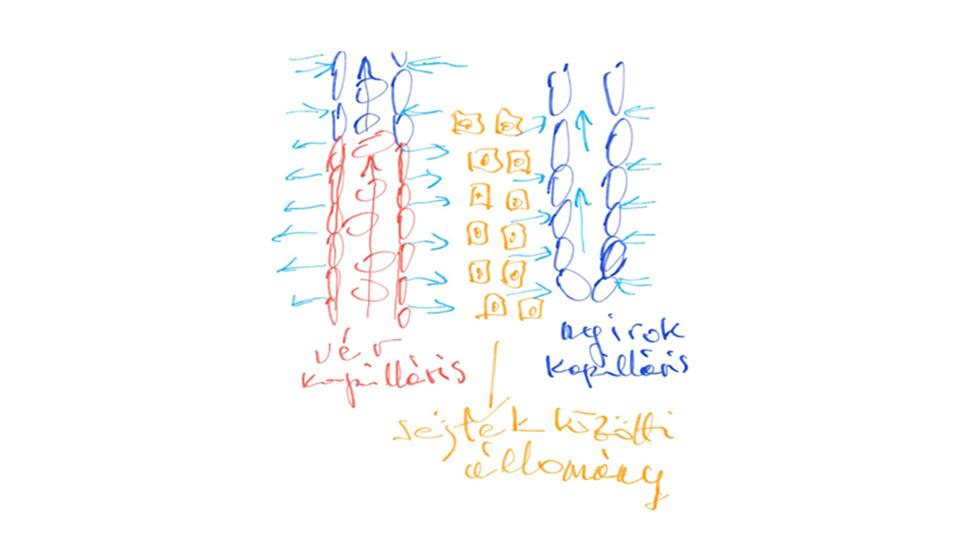 vér
kapilláris
nyirok
kapilláris
sejtek közötti
állomány